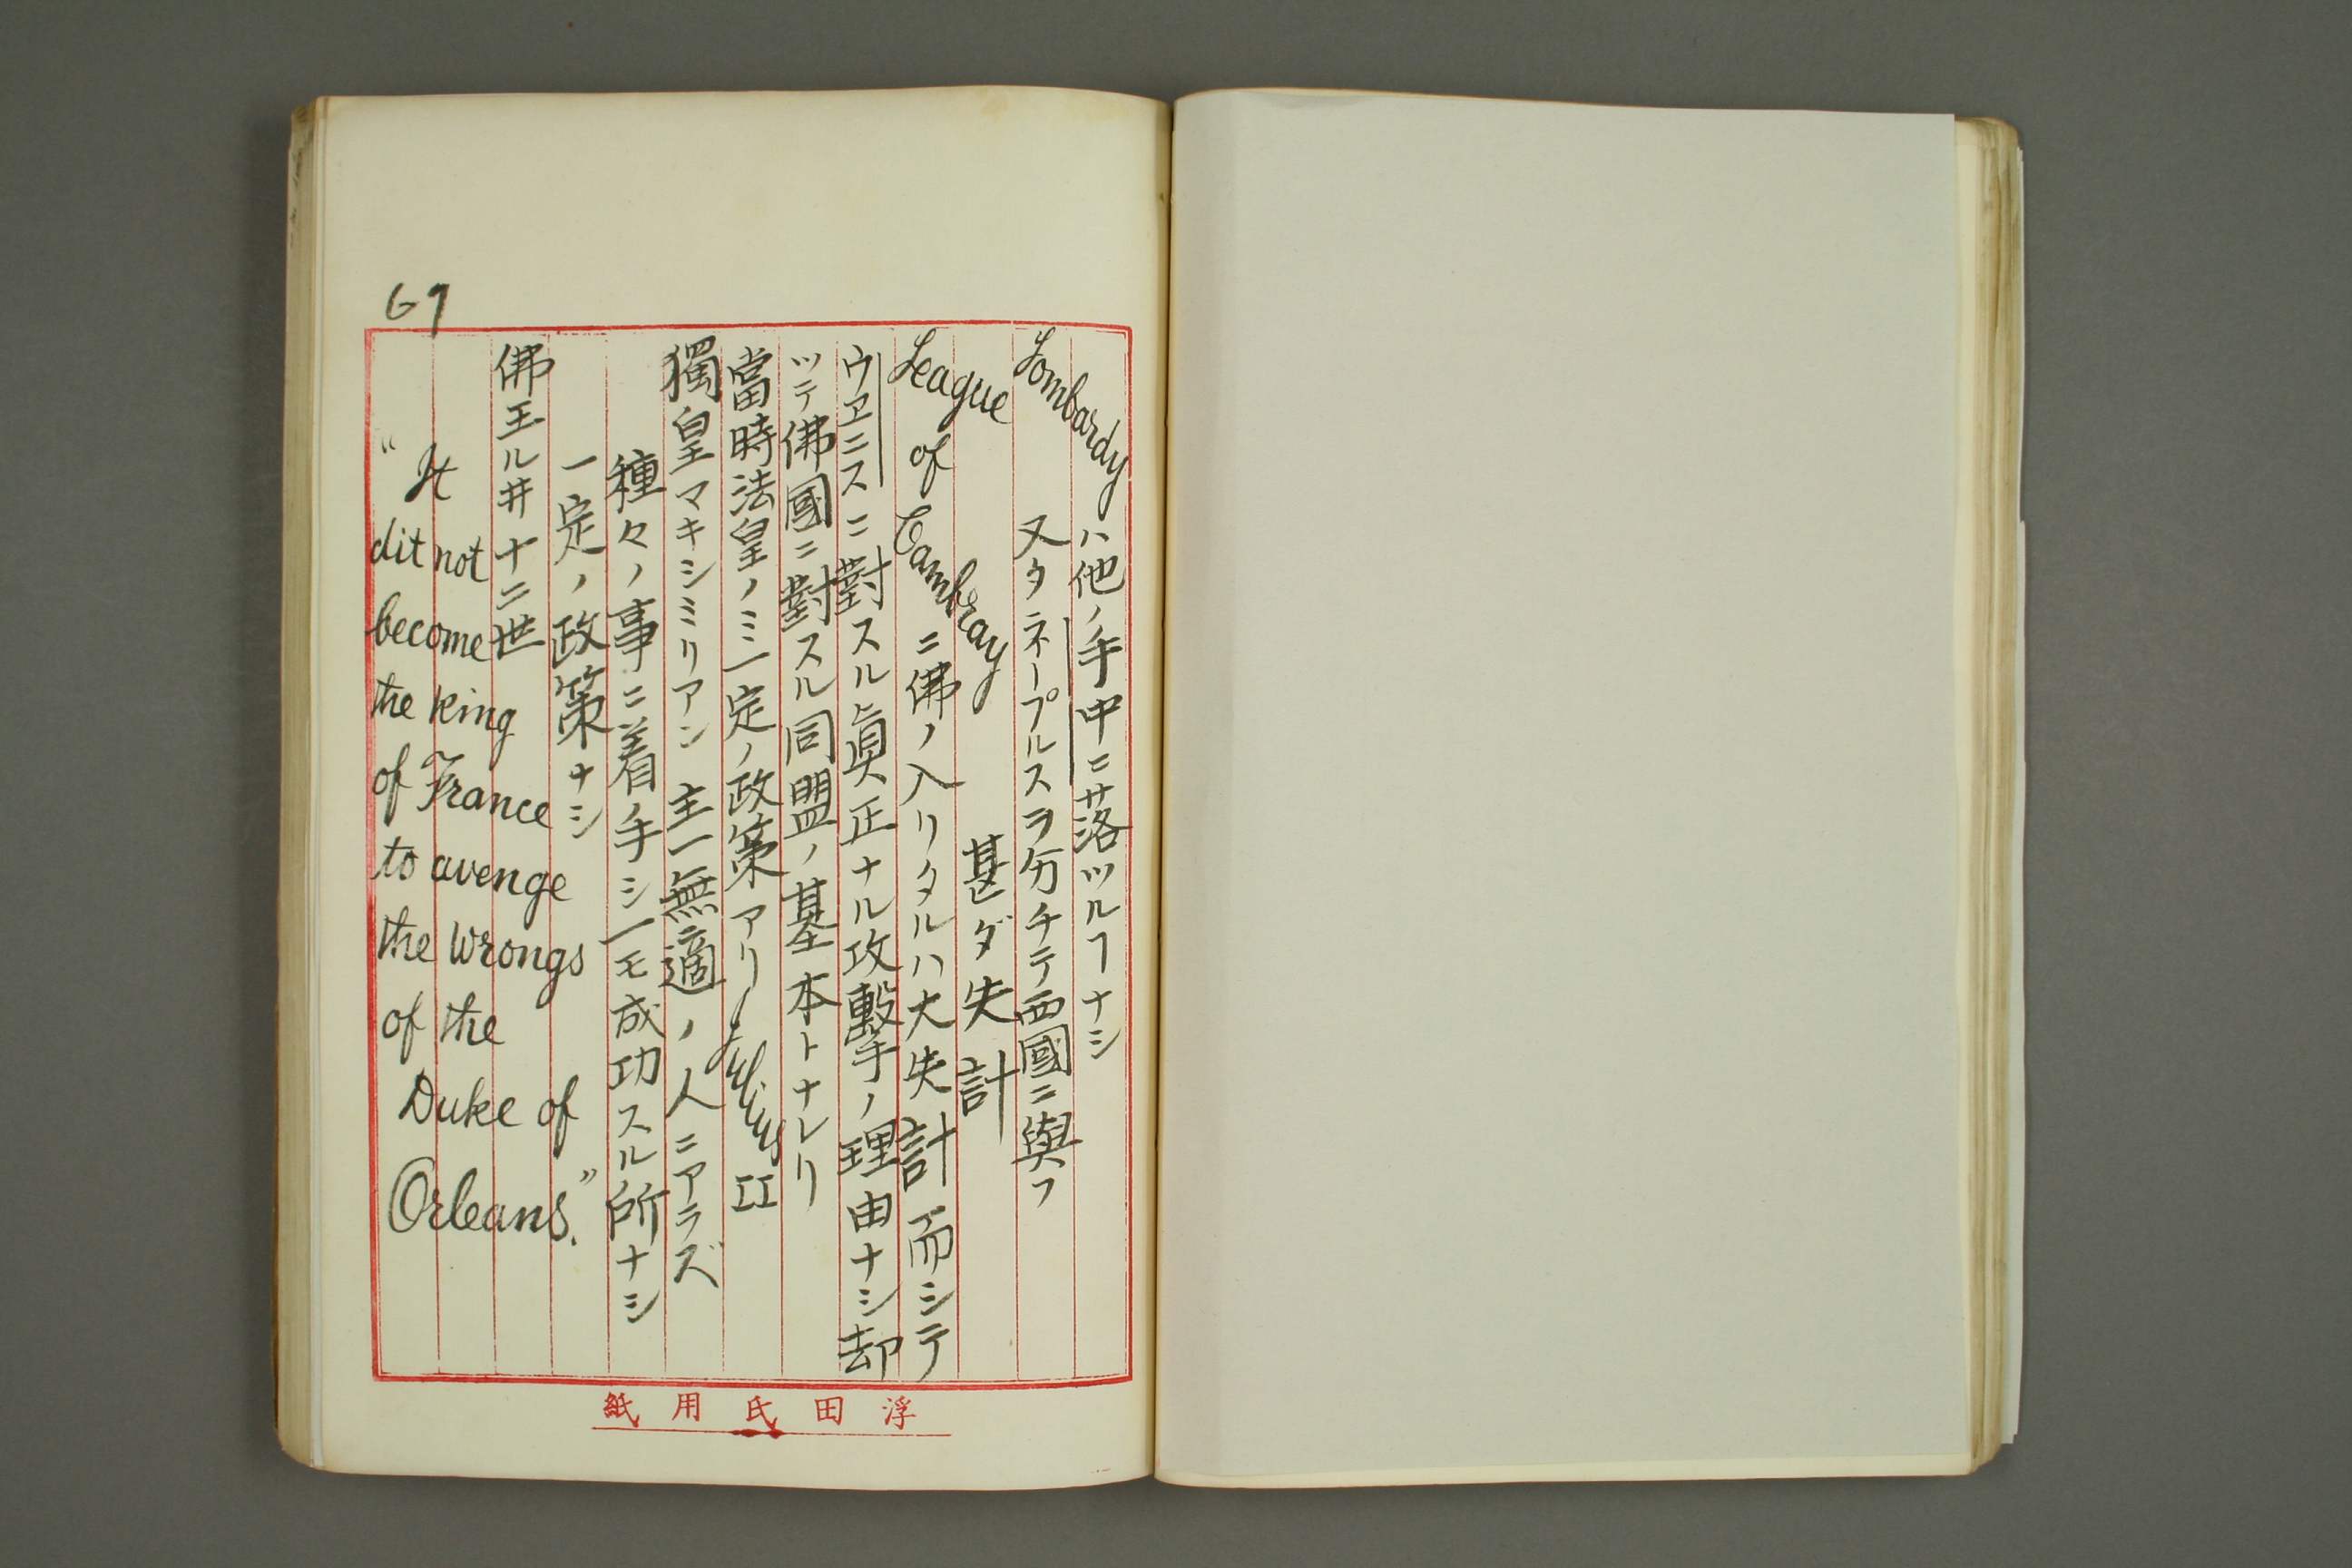 67
Lombardyハ他ノ手中ニ落ツルヿナシ
又タネープルスヲ分チテ西國ニ與フ
甚ダ失計
League of Cambrayニ佛ノ入リタルハ大失計而シテ
ウヱニスニ對スル眞正ナル攻擊ノ理由ナシ却
ツテ佛國ニ對スル同盟ノ基本トナレリ
當時法皇ノミ一定ノ政策アリ Julius II
獨皇マキシミリアン 主一無適ノ人ニアラズ
種々ノ事ニ着手シ一モ成功スル所ナシ
一定ノ政策ナシ
佛王ル井十二世
"It
dit not
become
the king
of France
to avenge
the wrongs
of the
Duke of
Orleans."
浮田氏用紙